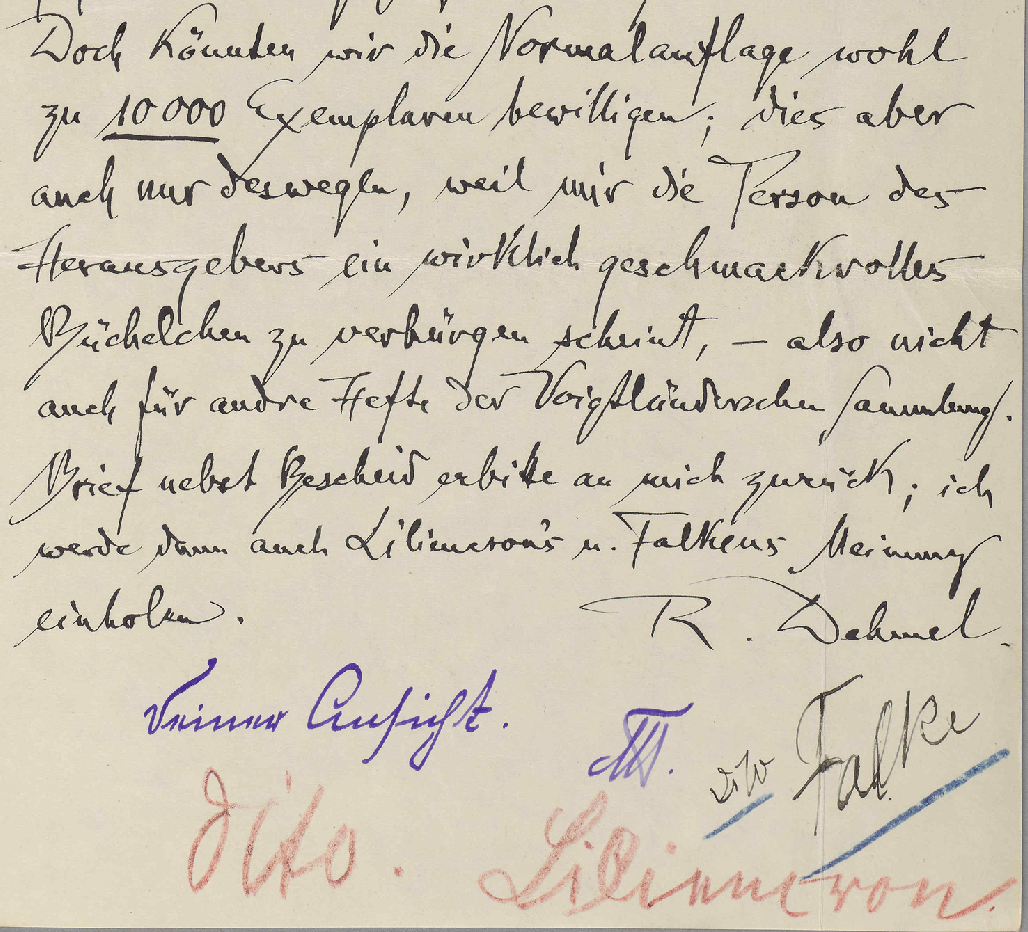 Doch könnten wir die Normalauflage wohl
zu 10000 Exemplaren bewilligen; dies aber
auch nur deswegen, weil mir die Person des
Herausgebers ein wirklich geschmackvolles
Büchelchen zu verbürgen scheint, – also nicht
auch für andre Hefte der Voigtländerschen Sammlung.
Brief nebst Bescheid erbitte an mich zurück; ich
werde dann auch Liliencron's u. Falkens Meinung
einholen.
R. Dehmel.
Deiner Ansicht.
dito Falke
dito. Liliencron.